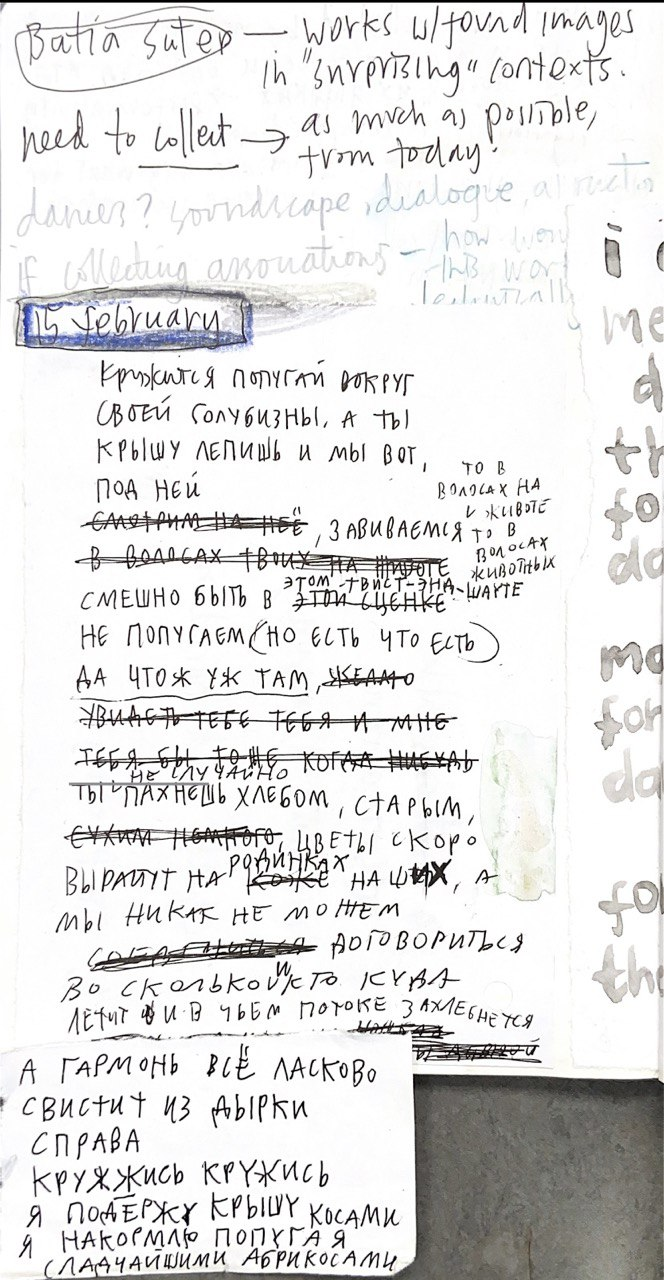 Batia Suter — works w/found images
in "surprising" contexts.
need to collect → as much as possible,
from today!
soundscape, dialogue,
if collecting assoations – how
15 february
КРУЖИТСЯ ПОПУГАЙ ВОКРУГ
СВОЕЙ ГОЛУБИЗНЫ, А ТЫ
КРЫШУ ЛЕПИШЬ И МЫ ВОТ,
ПОД НЕЙ
СМОТРИМ НА НЕЁ, ЗАВИВАЕМСЯ
ТО В
ВОЛОСАХ НА
ЖИВОТЕ
ТО В
ВОЛОСАХ
ЖИВОТНЫХ
В ВОЛОСАХ ТВОИХ НА ЖИВОТЕ
ЭТОМ ТВИСТ-ЭНА-ШАКТЕ
СМЕШНО БЫТЬ В ЭТОЙ СЦЕНКЕ
НЕ ПОПУГАЕМ (НО ЕСТЬ ЧТО ЕСТЬ)
ДА ЧТОЖ УЖ ТАМ, ЖЕЛАЮ
УВИДЕТЬ ТЕБЕ ТЕБЯ И МНЕ
ТЕБЯ БЫ ТОЖЕ КОГДА НИБУДЬ
НЕ СЛУЧАЙНО
ТЫ ПАХНЕШЬ ХЛЕБОМ, СТАРЫМ,
СУХИМ НЕМНОГО, ЦВЕТЫ СКОРО
РОДИНКАХ
ВЫРАСТУТ НА КОЖЕ НАШИХ, А
МЫ НИКАК НЕ МОЖЕМ
ДОГОВОРИТЬСЯ
ВО СКОЛЬКО И КТО КУДА
ЛЕТИТ И В ЧЬЕМ ПОТОКЕ ЗАХЛЕБНЕТСЯ
А ГАРМОНЬ ВСЁ ЛАСКОВО
СВИСТИТ ИЗ ДЫРКИ
СПРАВА
КРУЖЖИСЬ КРУЖИСЬ
Я ПОДЕРЖУ КРЫШУ КОСАМИ
Я НАКОРМЛЮ ПОПУГАЯ
СЛАДЧАЙШИМИ АБРИКОСАМИ
i
me
d
th
fo
do
mo
for
da
fo
tho